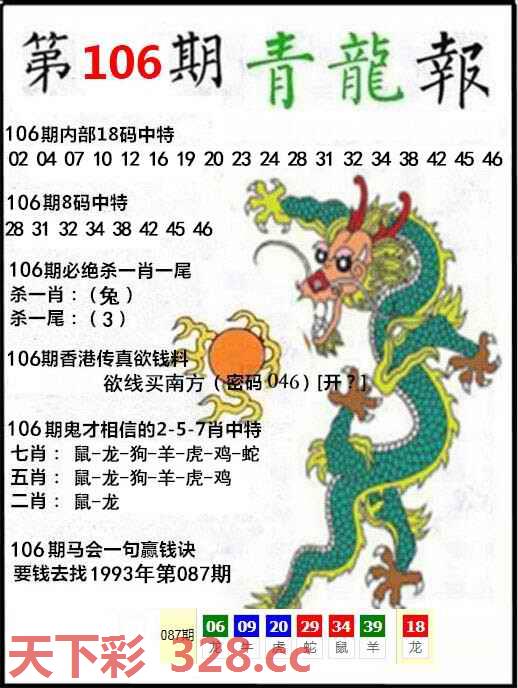 第106期青龍報
106期内部18码中特
02 04 07 10 12 16 19 20 23 24 28 31 32 34 38 42 45 46
106期8码中特
28 31 32 34 38 42 45 46
106期必绝杀一肖一尾
杀一肖：（兔）
杀一尾：（3）
106期香港传真欲钱料
欲线买南方（密码046）[开？]
106期鬼才相信的2-5-7肖中特
七肖：鼠-龙-狗-羊-虎-鸡-蛇
五肖：鼠-龙-狗-羊-虎-鸡
二肖：鼠-龙
106期马会一句赢钱诀
要钱去找1993年第087期
087期 06 09 20 29 34 39 18
龙 牛 虎 蛇 鼠 羊 龙
天下彩 328.cc